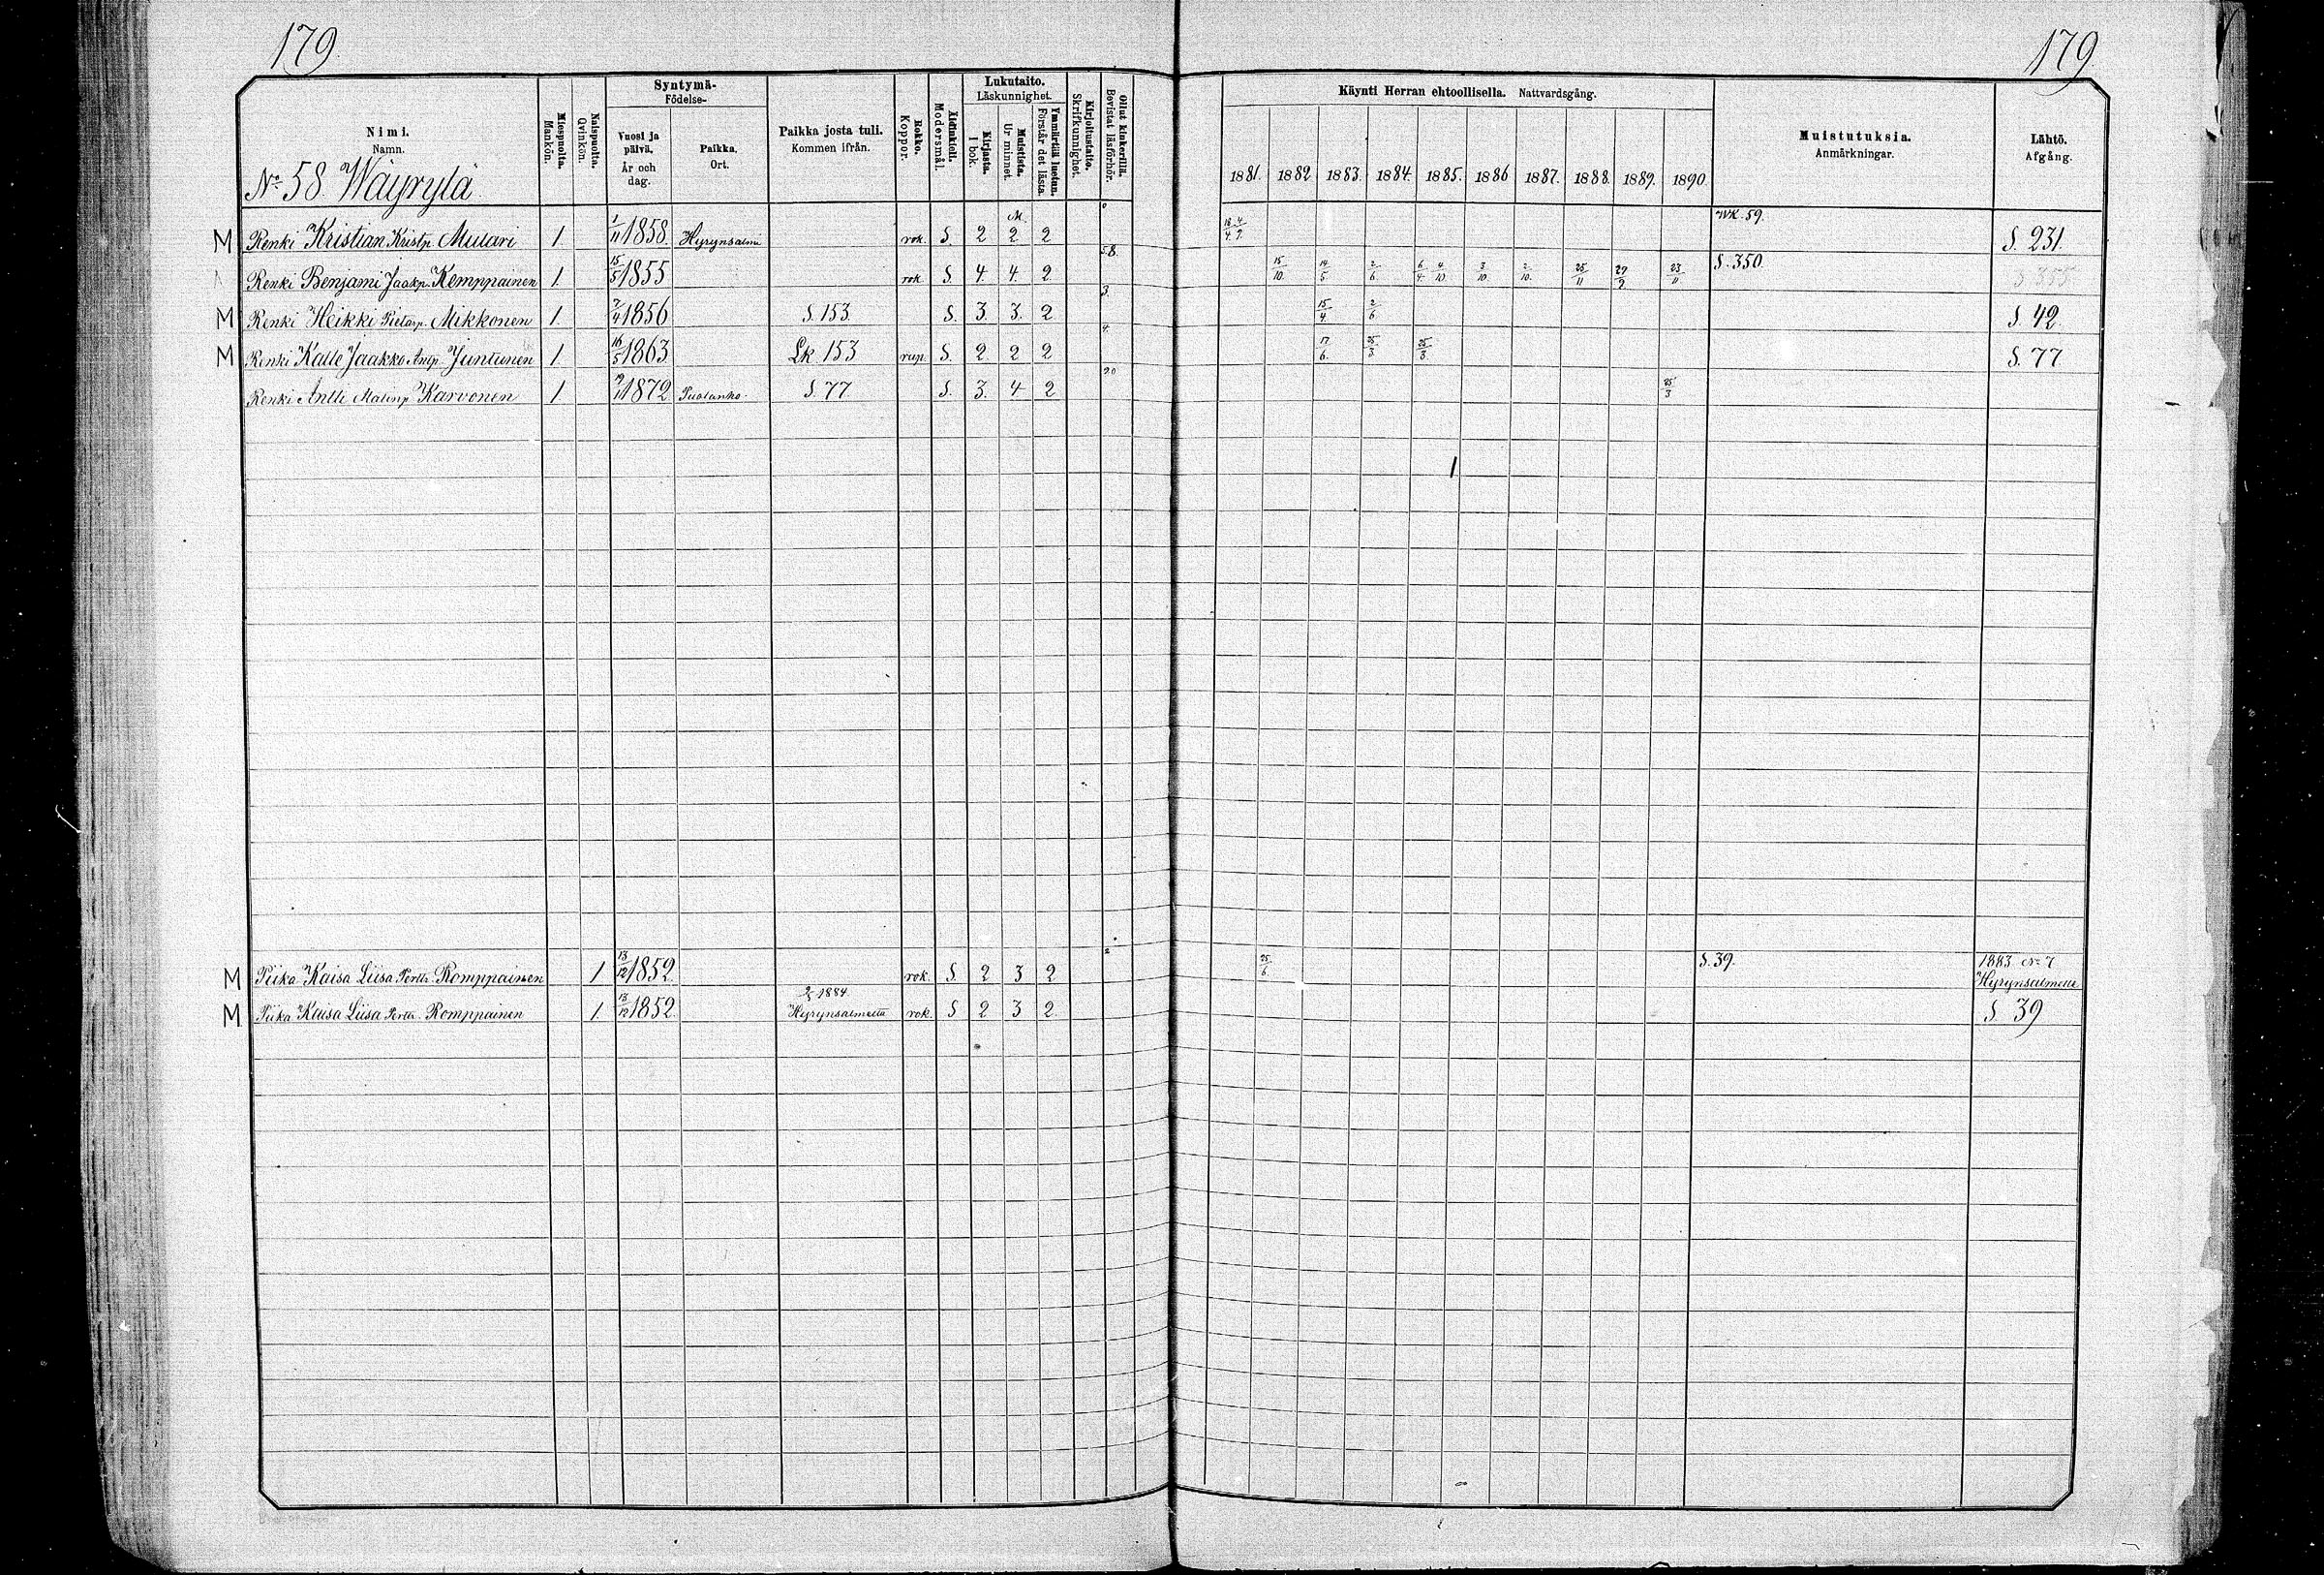 179.
179
Syntymä-
Födelse-
Lukutaito.
Läskunnighet.
Käynti Herran ehtoollisella. Nattvardsgång.
Nimi.
Namn.
Miespuolta.
Mankön.
Naispuolta.
Qvinkön.
Vuosi ja
päivä.
År och
dag.
Paikka.
Ort.
Paikka josta tuli.
Kommen ifrån.
Rokko.
Koppor.
Äidinkieli.
Modersmål.
Kirjasta.
I bok.
Muistista.
Ur minnet.
Ymmärtää luetun.
Förstår det lästa.
Kirjoitustaito.
Skrifkunnighet.
Ollut kinkerillä.
Bevistat läsförhör.
1881. 1882 1883. 1884. 1885. 1886 1887. 1888. 1889. 1890.
Muistutuksia.
Anmärkningar.
Lähtö.
Afgång.
No 58 Wäyrylä
M Renki Kristian Kristp. Mulari 1. 1/11 1858. Hyrynsalmi rok. S. 2 2 2 18/4 4/9. WK. 59. S. 231.
Renki Benjami Jaakp. Kemppainen 1. 15/5 1855 rok S. 4. 4. 2 5.8. 15/10. 14/5. 2/6. 6/4. 4/10. 3/10. 2/10. 25/11 29/9 23/11 S. 350. S 355
M Renki Heikki Pietarp. Mikkonen 1. 7/11 1856 S. 153. S. 3. 3. 2 3. 15/4. 2/6 S. 42.
M Renki Kalle Jaakko Antp. Juntunen 1. 16/5 1863 Lk 153 rup. S. 2 2 2 4. 17/6. 25/3. 25/3. S. 77.
Renki Antti Matinp Karvonen 1. 19/11 1872 Puolanko. S. 77 S. 3. 4 2 20 25/3
M Piika Kaisa Liisa Pertt. Romppainen 1 13/12 1852. rok. S. 2 3 2 2 25/6 S. 39. 1883 No 7
Hyrynsalmelle
M Piika Kaisa Liisa Pertt. Romppainen 1. 13/12 1852. 2/5 1884
Hyrynsalmelta rok. S 2 3 2 S. 39